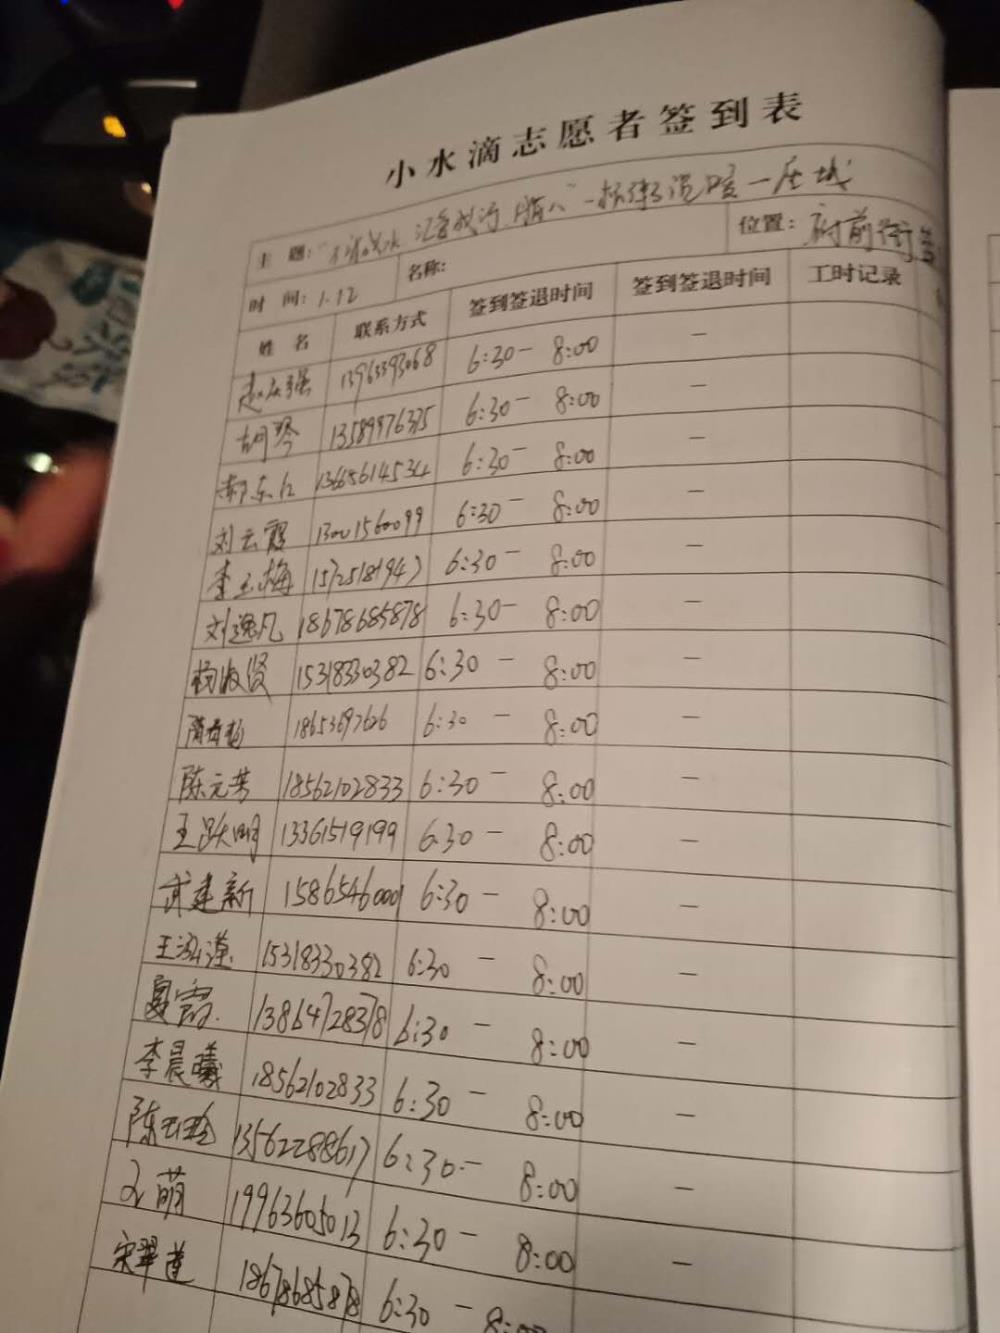 小水滴志愿者签到表
主 题: 一杯粥温暖一座城
时 间: 1.12 名称: 位置: 府前街
姓 名 联系方式 签到签退时间 签到签退时间 工时记录
赵庆强 13963393068 6:30- 8:00 —
胡琴 13589976335 6:30- 8:00 —
郝东仁 13656614534 6:30- 8:00 —
刘云霞 13001560099 6:30- 8:00 —
李玉梅 15725181947 6:30- 8:00 —
刘逸凡 18678685878 6:30- 8:00 —
杨淑贤 15318330382 6:30 - 8:00 —
18653697626 6:30 - 8:00 —
陈元芳 18562102833 6:30 - 8:00 —
王跃明 13361519199 6:30 - 8:00 —
武建新 15865460001 6:30 - 8:00 —
王泓谨 15318330382 6:30 - 8:00 —
夏霞 13864728378 6:30 - 8:00 —
李晨曦 18562102833 6:30 - 8:00 —
陈 13562288617 6:30 - 8:00 —
萌 19963605013 6:30 - 8:00 —
宋翠莲 18678685878 6:30 - 8:00